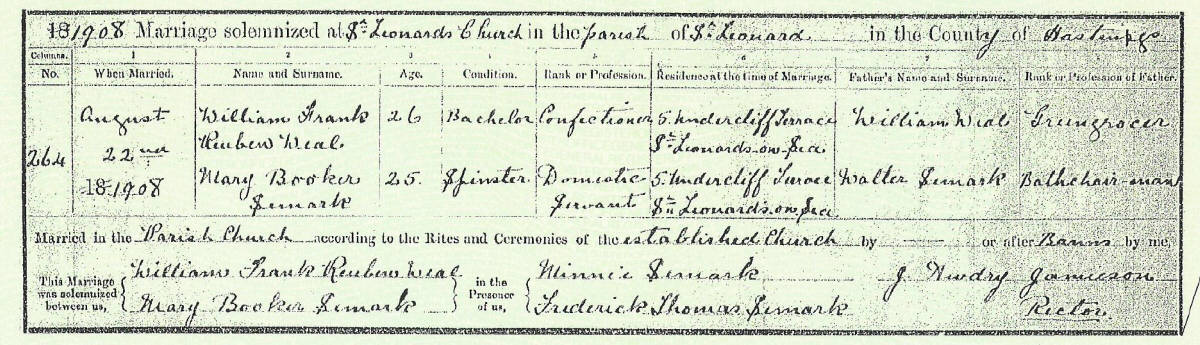 18 1908 Marriage solemnized at St. Leonards Church in the parish of St. Leonard in the County of Hastings
Columns. 1 2 3 4 5 6 7 8
No. When Married. Name and Surname. Age. Condition. Rank or Profession. Residence at the time of Marriage. Father's Name and Surname. Rank or Profession of Father.
August William Frank 26 Bachelor Confectioner 5. Undercliff Terrace William Weal Greengrocer
264 22nd Reuben Weal St. Leonards-on-Sea
18 1908 Mary Booker 25. Spinster Domestic 5. Undercliff Terrace Walter Semark Bathchair-man
Semark Servant St. Leonards-on-Sea
Married in the Parish Church according to the Rites and Ceremonies of the established Church by or after Banns by me,
This Marriage was solemnized between us, William Frank Reuben Weal in the Presence of us, Minnie Semark J. Jamieson
Mary Booker Semark Frederick Thomas Semark Rector